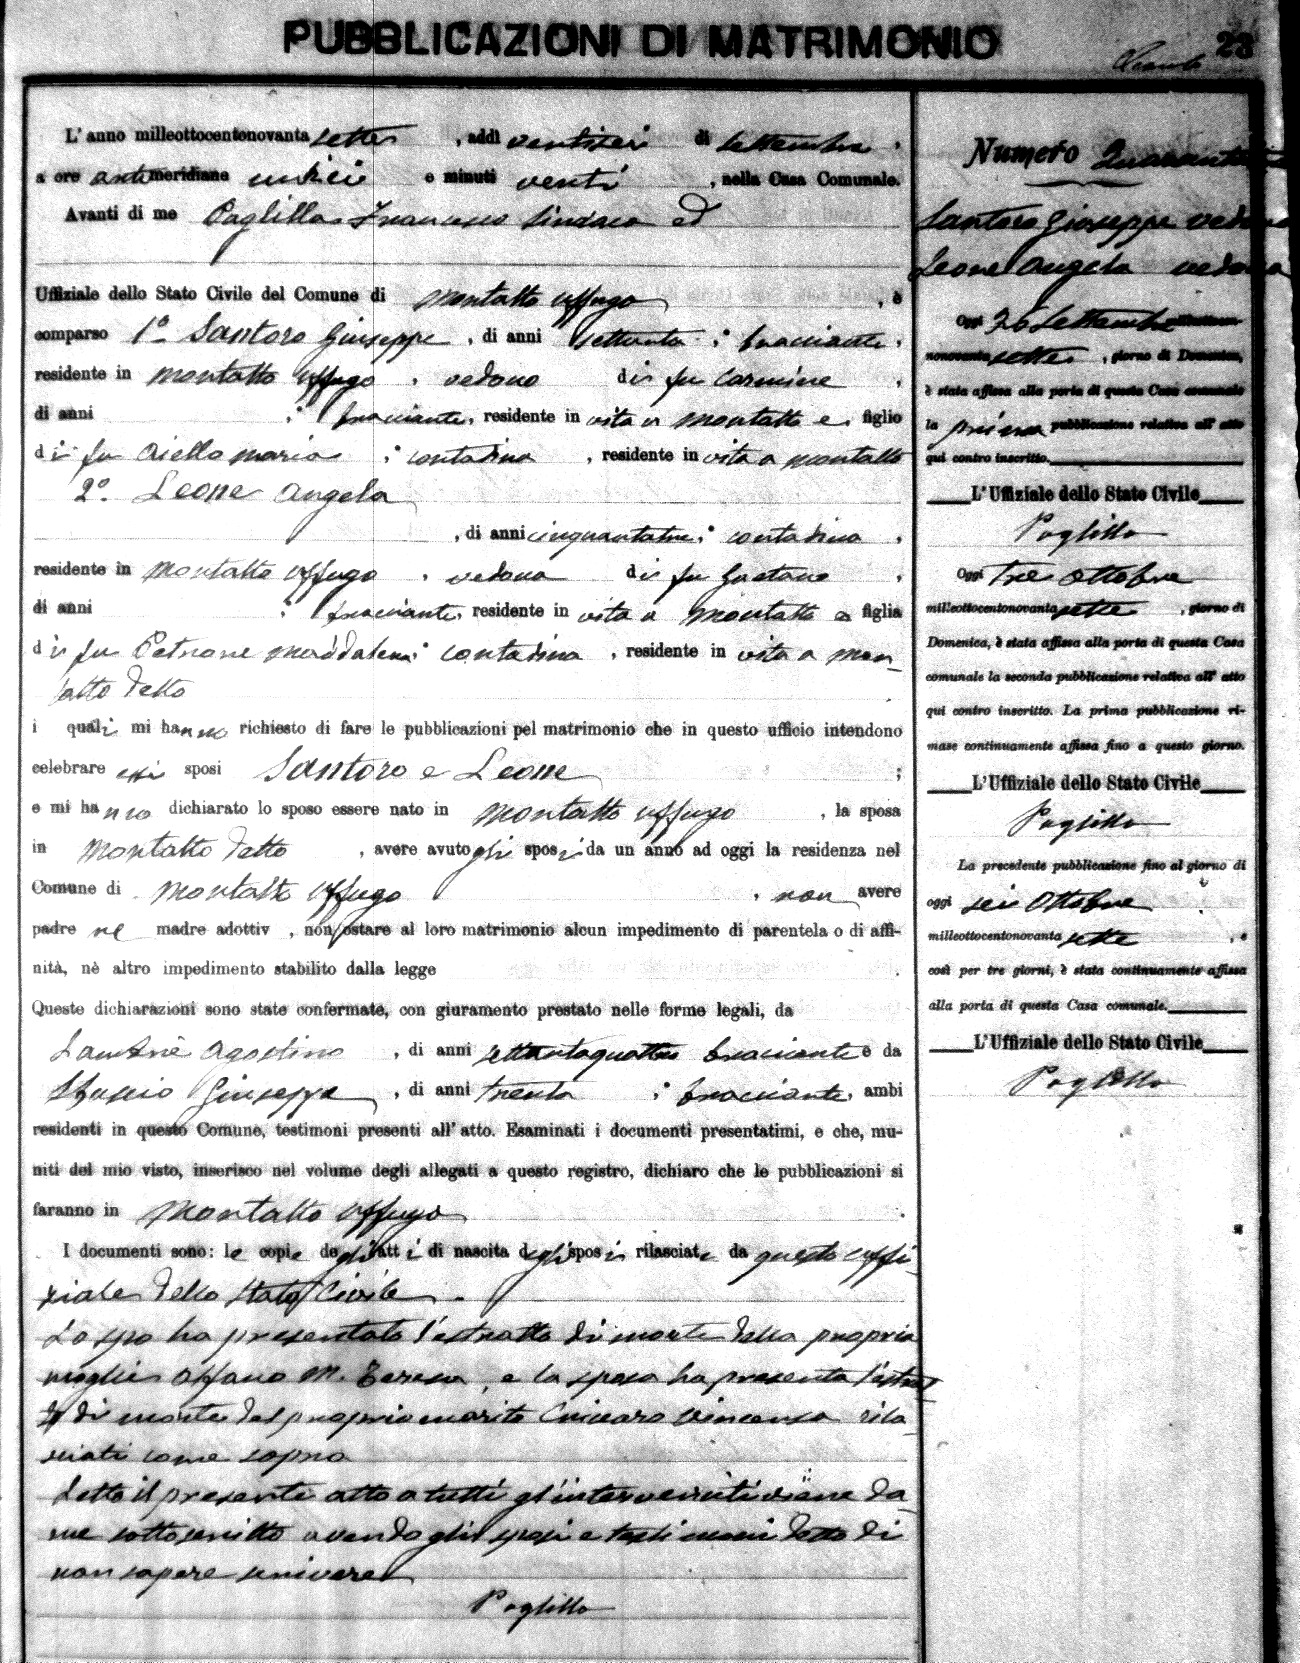 PUBBLICAZIONI DI MATRIMONIO
23
L'anno milleottocentonovanta sette, addì ventisei di settembre,
a ore antimeridiane undici e minuti venti, nella Casa Comunale.
Avanti di me Paglilla Francesco Sindaco ed
Uffiziale dello Stato Civile del Comune di Montalto Uffugo, è
comparso 1º Santoro Giuseppe, di anni settanta; bracciante,
residente in Montalto Uffugo, vedovo di fu Carmine,
di anni ; bracciante, residente in vita a Montalto e figlio
di fu Aiello Maria; contadina, residente in vita a Montalto
2º Leone Angela
, di anni cinquantatre; contadina,
residente in Montalto Uffugo, vedova di fu Gaetano,
di anni ; bracciante, residente in vita a Montalto e figlia
di fu Petrone Maddalena; contadina, residente in vita a Mon-
talto detto.
i quali mi hanno richiesto di fare le pubblicazioni pel matrimonio che in questo ufficio intendono
celebrare essi sposi Santoro e Leone;
e mi hanno dichiarato lo sposo essere nato in Montalto Uffugo, la sposa
in Montalto detto, avere avuto gli sposi da un anno ad oggi la residenza nel
Comune di Montalto Uffugo, non avere
padre nè madre adottiv , non ostare al loro matrimonio alcun impedimento di parentela o di affi-
nità, nè altro impedimento stabilito dalla legge.
Queste dichiarazioni sono state confermate, con giuramento prestato nelle forme legali, da
Agostino, di anni settantaquattro bracciante e da
Giuseppe, di anni trenta; bracciante, ambi
residenti in questo Comune, testimoni presenti all'atto. Esaminati i documenti presentatimi, e che, mu-
niti del mio visto, inserisco nel volume degli allegati a questo registro, dichiaro che le pubblicazioni si
faranno in Montalto Uffugo.
I documenti sono: le copie degli atti di nascita degli sposi rilasciate da questo uffi-
ziale dello Stato Civile.
Lo spo ha presentato l'estratto di morte della propria
moglie M. Teresa, e la sposa ha presenta l'estrat
to di morte del proprio marito Vincenzo rila-
sciati come sopra
Letto il presente atto a tutti gl'intervenuti viene da
me sottoscritto avendo gli sposi e testimoni detto di
non sapere scrivere
Paglilla
Numero
Santoro Giuseppe vedovo
Leone Angela vedova
Oggi 26 Settembre milleottocen-
novanta sette, giorno di Domenica,
è stata affissa alla porta di questa Casa comunale
la prima pubblicazione relativa all'atto
qui contro inscritto.
L'Uffiziale dello Stato Civile
Paglilla
Oggi tre ottobre
milleottocentonovanta sette, giorno di
Domenica, è stata affissa alla porta di questa Casa
comunale la seconda pubblicazione relativa all'atto
qui contro inscritto. La prima pubblicazione ri-
mase continuamente affissa fino a questo giorno.
L'Uffiziale dello Stato Civile
Paglilla
La precedente pubblicazione fino al giorno di
oggi sei Ottobre
milleottocentonovanta sette, e
così per tre giorni, è stata continuamente affissa
alla porta di questa Casa comunale.
L'Uffiziale dello Stato Civile
Paglilla